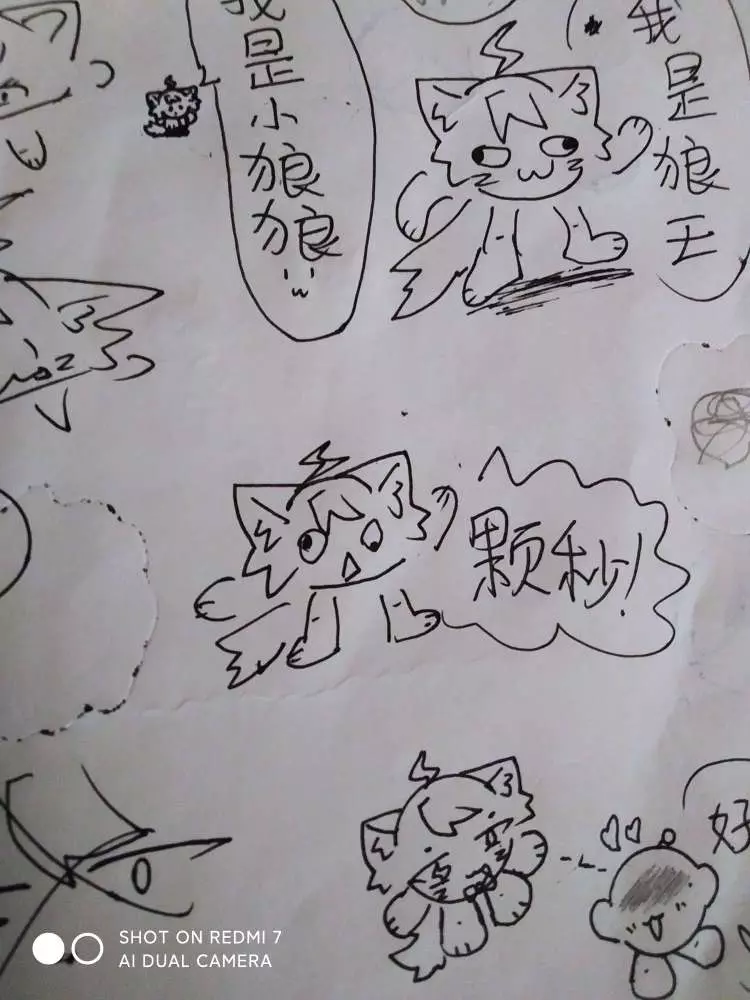 我是小狼狼
我是狼王
颗秒!
好
SHOT ON REDMI 7
AI DUAL CAMERA